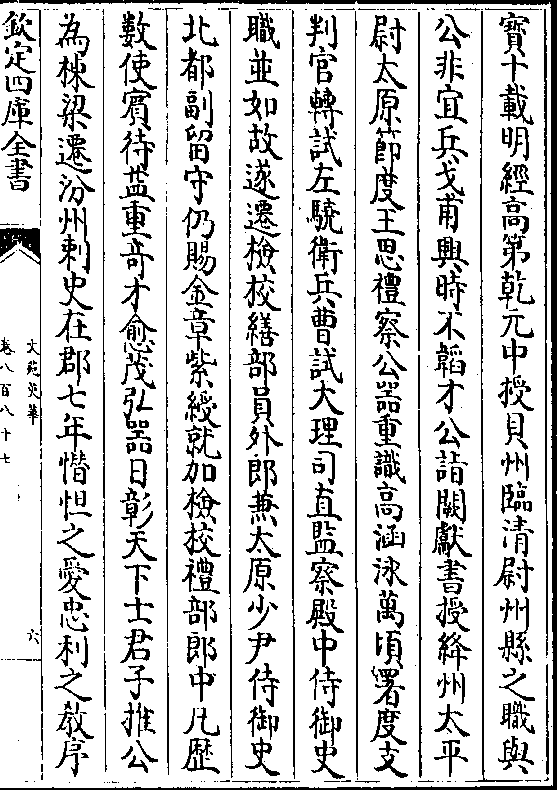 寶十載明經高第乾元中授貝州臨清尉州縣之職與
公非宜兵戈甫興時不韜才公詣闕獻書授絳州太平
尉太原節度王思禮察公器重識高涵泳萬頃署度支
判官轉試左驍衛兵曹試大理司直監察殿中侍御史
職並如故遂遷檢校繕部員外郎兼太原少尹侍御史
北都副留守仍賜金章紫綬就加檢校禮部郎中凡歷
數使賓待益重奇才愈茂弘器日彰天下士君子推公
為棟梁遷汾州刺史在郡七年惜怛之愛忠利之敎序
欽定四庫全書
文苑英華
卷八百八十七
六